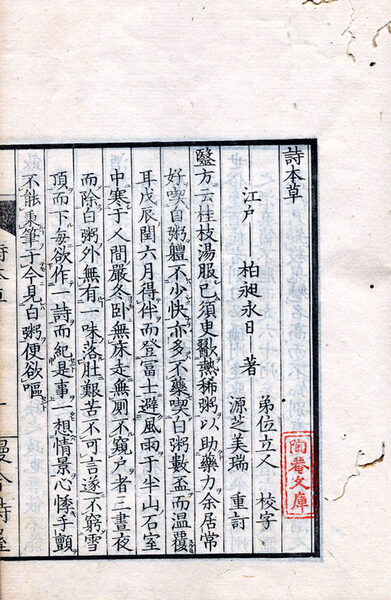 詩本草
江戸 柏昶永日 著
弟位立人 校字
源芝美瑞 重訂
陶菴文庫
毉方云桂枝湯服已須臾歠熱稀粥以助藥力余居常
好喫白粥軆不少快亦多不藥喫白粥數盃而溫覆
耳戊辰閏六月得伴而登富士避風雨于半山石室
中寒于人間嚴冬卧無床走無厠不窺戸者二晝夜
而除白粥外無有一味落肚艱苦不可言遂不窮雪
頂而下每欲作一詩而紀是事一想情景心悸手顫
不能秉筆于今見白粥便欲嘔
詩本草
一